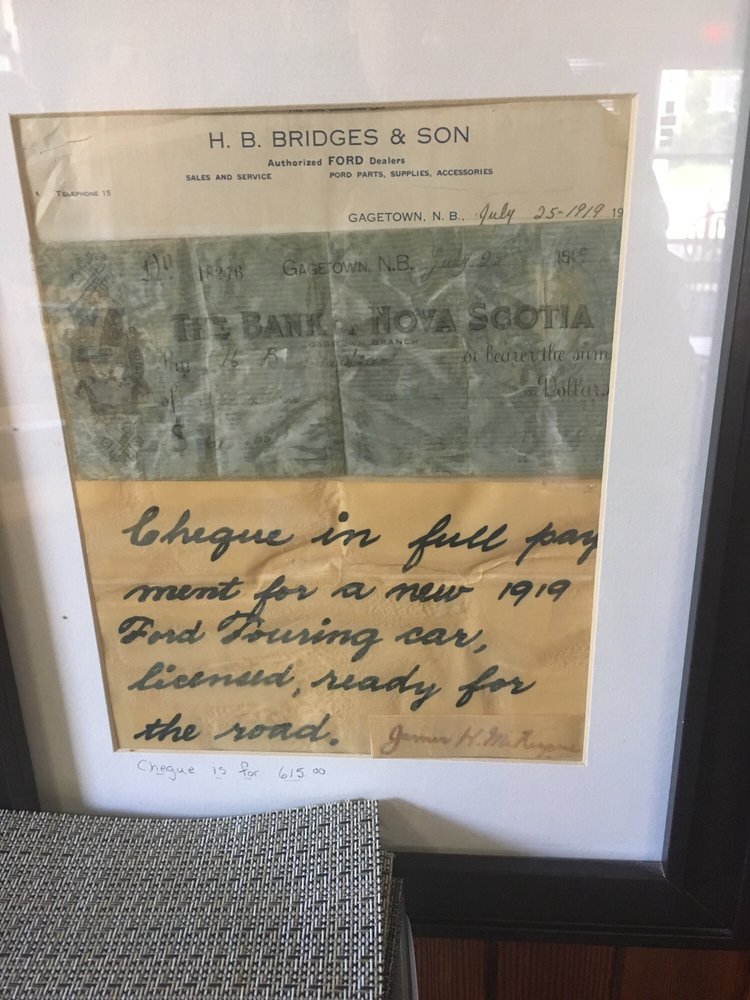 H. B. BRIDGES & SON
Authorized FORD Dealers
SALES AND SERVICE FORD PARTS, SUPPLIES, ACCESSORIES
TELEPHONE 15
GAGETOWN, N. B., July 25-1919 19
GAGETOWN, N.B. July 25 1919
THE BANK OF NOVA SCOTIA
GAGETOWN BRANCH
Pay H B or bearer the sum
of Dollars
$
Cheque in full pay
ment for a new 1919
Ford Touring car,
licensed, ready for
the road.
James H.
Cheque is for 615.00